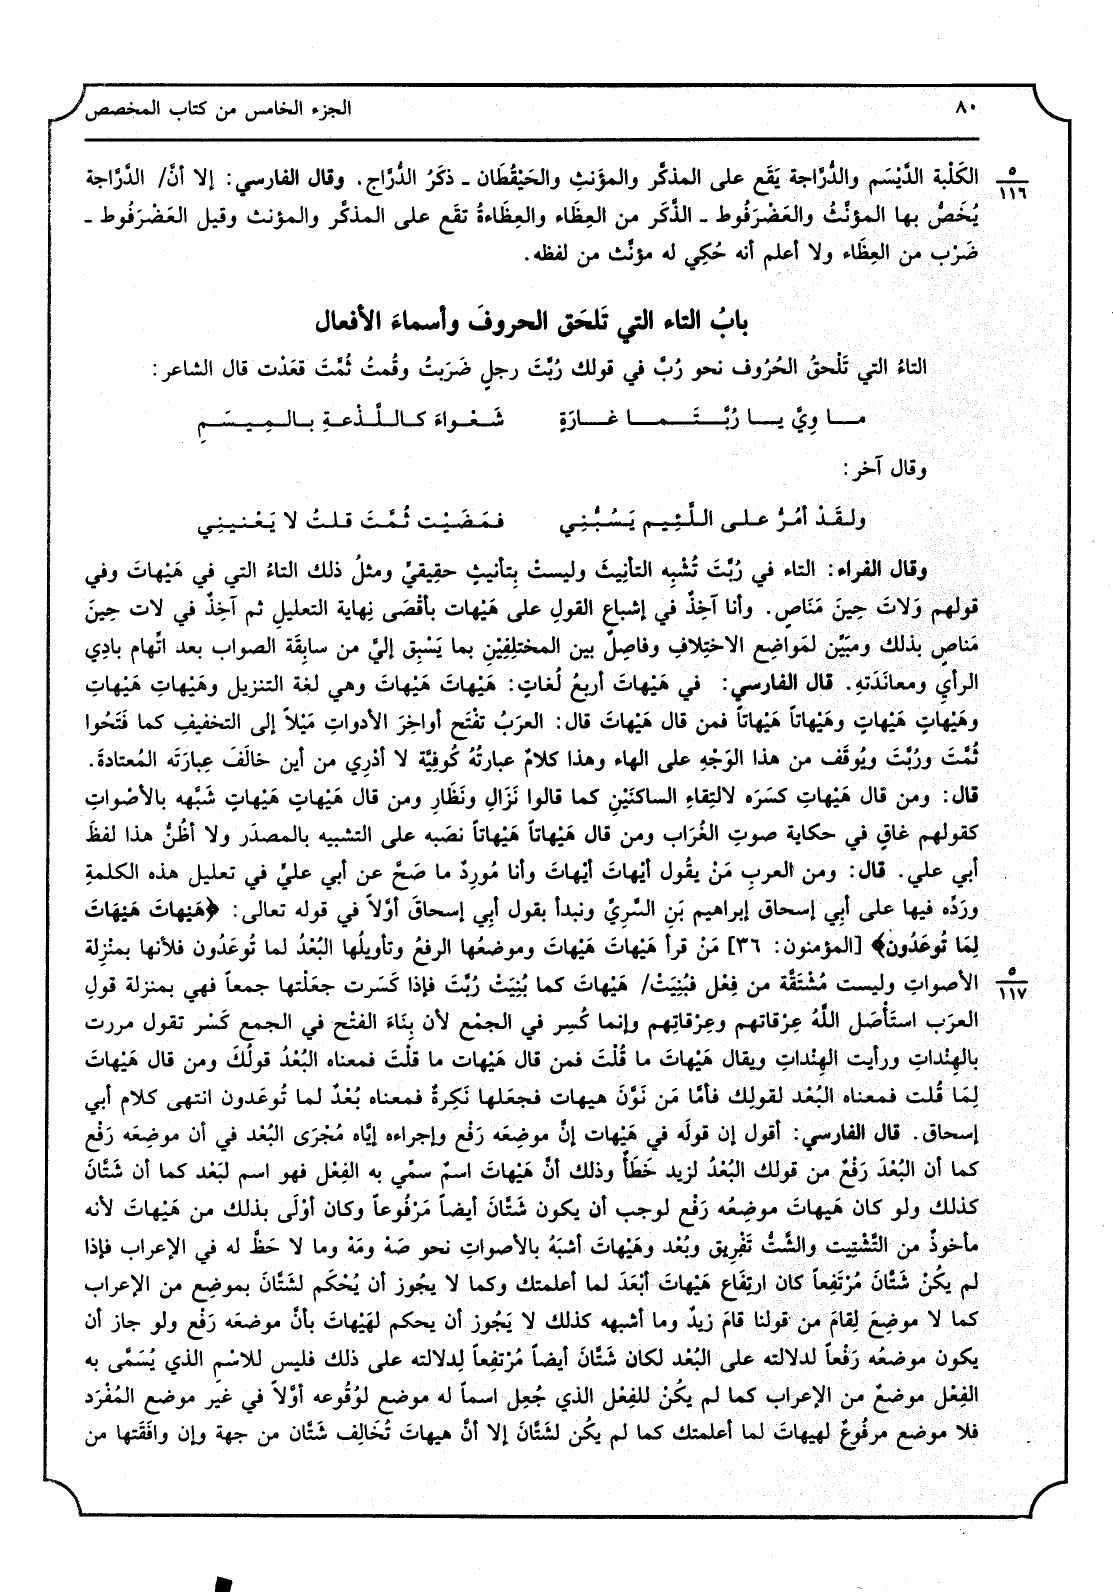 ٨٠ الجزء الخامس من كتاب المخصص
٥
١١٦
الكَلْبة الدَّيْسَم والدُّرَّاجة يَقَع على المذكَّر والمؤنَثِ والحَيْقُطَان ـ ذكَرُ الدُّرَّاج. وقال الفارسي: إلا أنَّ/ الدَّرَّاجة
يُخَصُّ بها المؤنَّثُ والعَضْرَفُوط ـ الذَّكَر من العِظَاء والعِظَاءةُ تقَع على المذكَّر والمؤنث وقيل العَضْرَفُوط ـ
ضَرْب من العِظَاء ولا أعلم أنه حُكِي له مؤنَّث من لفظه.
بابُ التاء التي تَلحَق الحروفَ وأسماءَ الأفعال
التاءُ التي تَلْحقُ الحُرُوف نحو رُبَّ في قولك رُبَّتَ رجلٍ ضَرَبتُ وقُمتُ ثُمَّتَ قعَدْت قال الشاعر:
مـا وِيَّ يـا رُبَّـتَـمـا غـارَةٍ شَـعْـواءَ كـالـلَّذْعـةِ بـالـمِيـسَـمِ
وقال آخر:
ولـقَـدْ أمُرُّ عـلـى الـلَّـئِيـم يَسُـبُّـنِي فـمَـضَيْـت ثُـمَّـتَ قـلـتُ لا يَـعْـنيـنِي
وقال الفراء: التاء في رُبَّتَ تُشْبِه التأنِيثَ وليستْ بِتأنيثٍ حقِيقيٍّ ومثلُ ذلك التاءُ التي في هَيْهاتَ وفي
قولهم وَلاتَ حِينَ مَنَاصٍ. وأنا آخِذٌ في إشباع القولِ على هَيْهات بأقْصَى نِهاية التعليلِ ثم آخِذٌ في لات حِينَ
مَناصٍ بذلك ومبَيِّن لمَواضِع الاختِلافِ وفاصِلٌ بين المختلِفِيْنِ بما يَسْبِق إليَّ من سابِقَة الصواب بعد اتِّهام بادِي
الرأيِ ومعانَدَتهِ. قال الفارسي: في هَيْهاتَ أربعُ لُغاتٍ: هَيْهاتَ هَيْهاتَ وهي لغة التنزيل وهَيْهاتِ هَيْهاتِ
وهَيْهاتٍ هَيْهاتٍ وهَيْهاتاً هَيْهاتاً فمن قال هَيْهاتَ قال: العرَبُ تفْتَح أواخِرَ الأدواتِ مَيْلاً إلى التخفيفِ كما فَتَحُوا
ثُمَّتَ ورُبَّتَ ويُوقَف من هذا الوَجْهِ على الهاء وهذا كلامٌ عبارتُهُ كُوفِيَّة لا أدْرِي من أين خالَفَ عِبارَته المُعتادة.
قال: ومن قال هَيْهاتِ كسَرَه لالتِقاءِ الساكنَيْنِ كما قالوا نَزَالِ ونَظَارِ ومن قال هَيْهاتٍ هَيْهاتٍ شَبَّهه بالأصْواتِ
كقولهم غاقٍ في حكاية صوتِ الغُرَاب ومن قال هَيْهاتاً هَيْهاتاً نصَبه على التشبيه بالمصدَر ولا أظُنُّ هذا لفظَ
أبي علي. قال: ومن العربِ مَنْ يقُول أيْهاتَ أيْهاتَ وأنا مُورِدٌ ما صَحَّ عن أبي عليٍّ في تعليل هذه الكلمةِ
ورَدِّه فيها على أبي إسحاق إبراهيم بَنِ السَّرِيِّ ونبدأ بقول أبِي إسحاقَ أوَّلاً في قوله تعالى: ﴿هَيْهاتَ هَيْهَاتَ
لِمَا تُوعَدُون﴾ [المؤمنون: ٣٦] مَنْ قرأ هَيْهاتَ هَيْهاتَ وموضعُها الرفعُ وتأويلُها البُعْدُ لما تُوعَدُون فلأنها بمنْزِلة
٥
١١٧
الأصواتِ وليست مُشْتَقَّة من فِعْل فبُنِيَتْ/ هَيْهاتَ كما بُنِيَتْ رُبَّتَ فإذا كَسَرت جعَلْتها جمعاً فهي بمنزلة قولِ
العرَب استَأْصَل اللَّهُ عِرْقاتهم وعِرْقاتِهم وإنما كُسِر في الجمْع لأن بِنَاءَ الفتْح في الجمع كَسْر تقول مررت
بالهِنْداتِ ورأيت الهِنْداتِ ويقال هَيْهاتَ ما قُلْتَ فمن قال هَيْهات ما قلْتَ فمعناه البُعْدُ قولُكَ ومن قال هَيْهاتَ
لِمَا قُلت فمعناه البُعْد لقولِك فأمَّا مَن نَوَّنَ هيهات فجعَلها نَكِرةً فمعناه بُعْدٌ لما تُوعَدون انتهى كلام أبي
إسحاق. قال الفارسي: أقول إن قولَه في هَيْهات إنَّ موضِعَه رَفْع وإجراءه إيَّاه مُجْرَى البُعْد في أن موضِعَه رَفْع
كما أن البُعْدَ رَفْعٌ من قولك البُعْدُ لزيد خَطَأٌ وذلك أنَّ هَيْهاتَ اسمٌ سمِّي به الفِعْل فهو اسم لبَعُد كما أن شَتَّانَ
كذلك ولو كان هَيهاتَ موضِعُه رَفْع لوجب أن يكون شَتَّانَ أيضاً مَرْفُوعاً وكان أوْلَى بذلك من هَيْهاتَ لأنه
مأخوذٌ من التَّشْتِيت والشَّتُّ تَفْرِيق وبُعْد وهَيْهاتَ أشبَهُ بالأصواتِ نحو صَهْ ومَهْ وما لا حَظَّ له في الإعراب فإذا
لم يكُنْ شَتَّانَ مُرْتَفِعاً كان ارتِفَاع هَيْهاتَ أبْعَدَ لما أعلمتك وكما لا يجُوز أن يُحْكَم لشَتَّانَ بموضِع من الإعراب
كما لا موضِعَ لِقامَ من قولنا قامَ زيدٌ وما أشبهه كذلك لا يَجُوز أن يحكم لهَيْهاتَ بأنَّ موضعَه رَفْع ولو جاز أن
يكون موضعُه رَفْعاً لدلالته على البُعْد لكان شَتَّانَ أيضاً مُرْتفِعاً لِدلالته على ذلك فليس للاسْمِ الذي يُسَمَّى به
الفِعْل موضعٌ من الإعراب كما لم يكُنْ للفِعْل الذي جُعِل اسماً له موضع لوُقُوعه أوَّلاً في غير موضع المُفْرَد
فلا موضع مرفُوعٌ لهيهاتَ لما أعلمتك كما لم يكُن لشَتَّانَ إلا أنَّ هيهاتَ تُخَالِف شَتَّان من جهة وإن وافَقَتها من